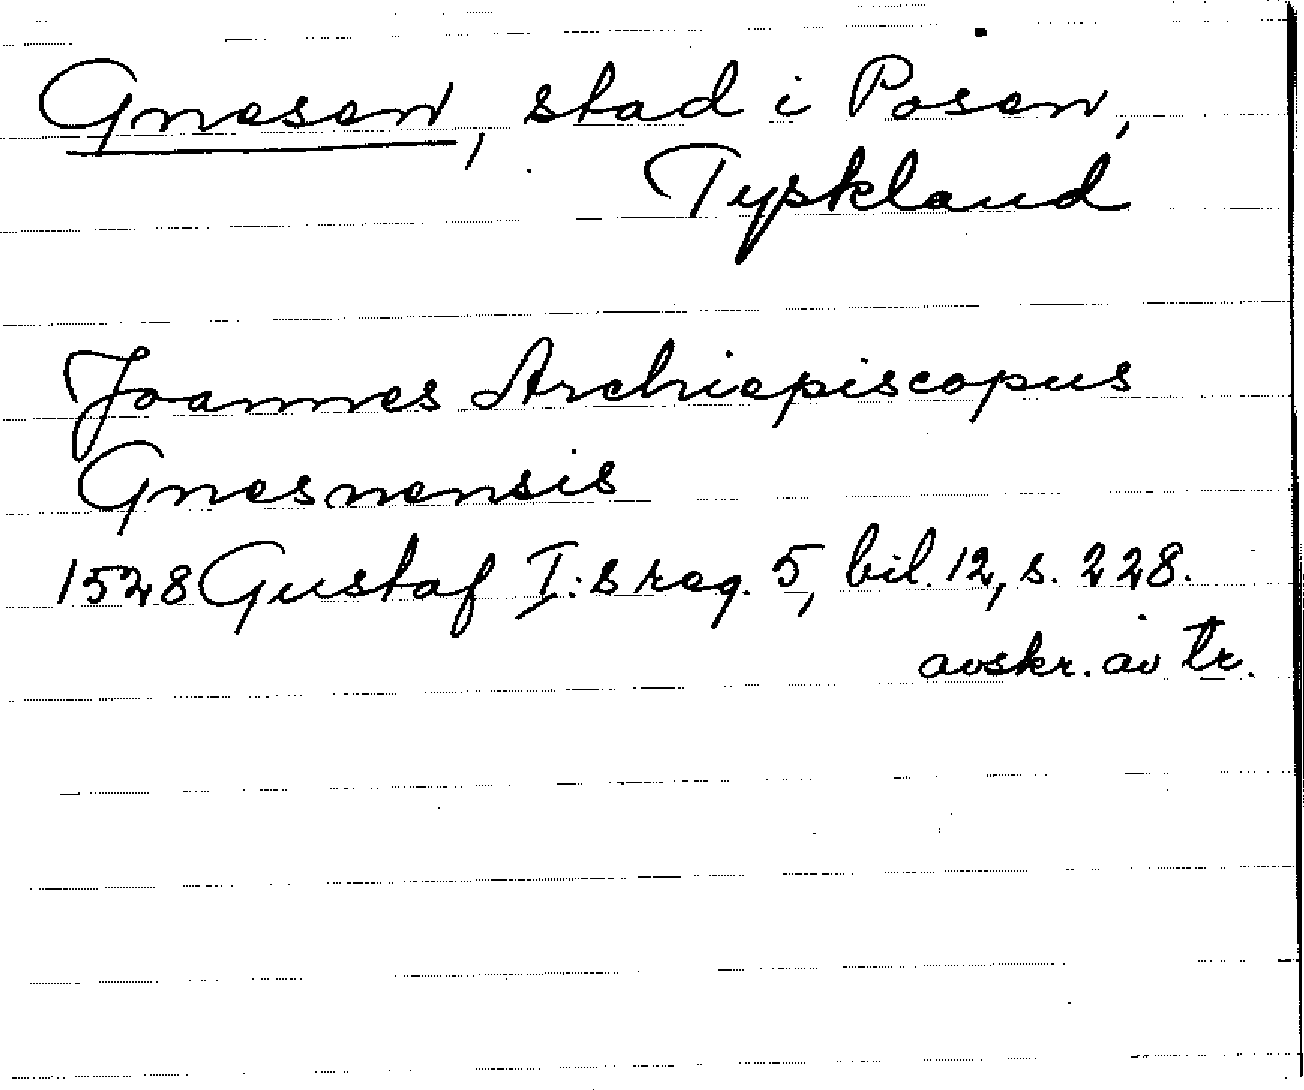 Gnesen, stad i Posen,
Tyskland
Joannes Archiepiscopus
Gnesnensis
1528 Gustaf I:s reg. 5, bil. 12, s. 228.
avskr. av tr.